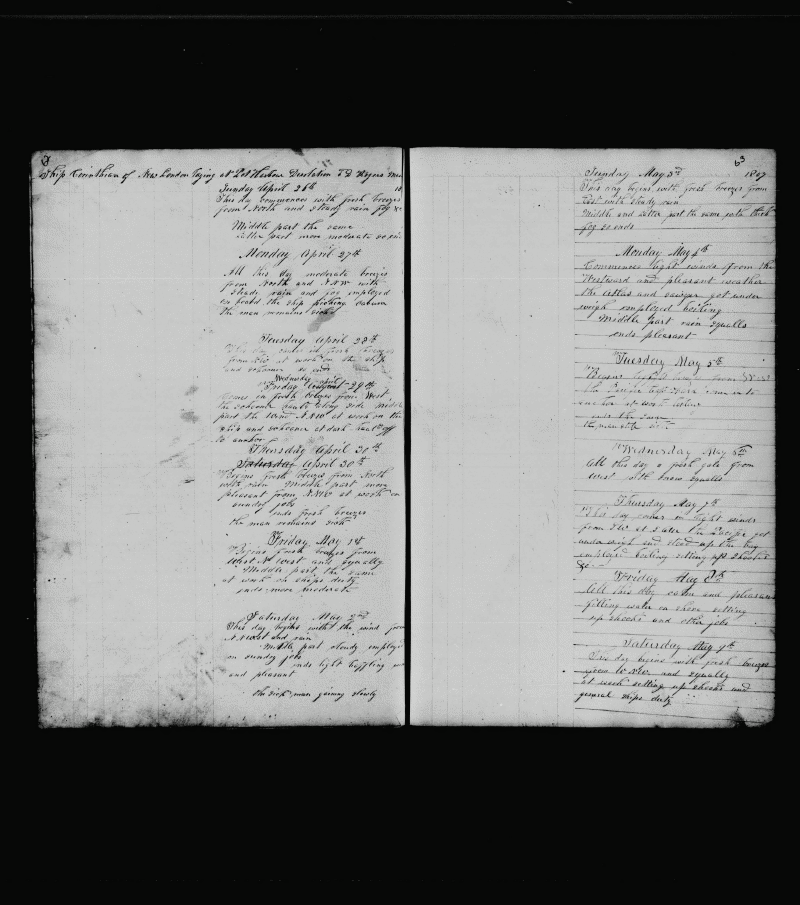 Ship Corinthian of New London laying at Pot Harbour Desolation
Sunday April 26th
This day commences with fresh breezes
from North and steady rain fog &c
Middle part the same
Latter part more moderate so ends
Monday April 27th
All this day moderate breezes
from North and N.N.W with
steady rain and fog employed
on board the ship picking oakum
the man remains sick
Tuesday April 28th
This day comes in fresh breezes
from at work on the ship
and schooner so ends
Wednesday April
Friday 29th
Comes in fresh breezes from West
the schooner hauls along side Middle
part the wind N.N.W at work on the
ship and schooner at dark haul off
to anchor
Thursday April 30th
Saturday April 30th
Begins fresh breezes from North
with rain Middle part more
pleasant from N.N.W at work on
sunder jobs
ends fresh breezes
the man remains sick
Friday May 1st
Begins fresh breezes from
West N West and squally
Middle part the same
at work on ships duty
ends more moderate
Saturday May 2nd
This day begins with the wind from
N.West and rain
Middle part steady employed
on sunday jobs
ends light baffling
and pleasant
the sick man gaining slowly
63
Sunday May 3rd 1867
This day begins with fresh breezes from
East with steady rain
Middle and latter part the same with thick
fog so ends
Monday May 4th
Commences light winds from the
Westward and pleasant weather
the and got under
weigh employed boiling
Middle part rain squalls
ends pleasant
Tuesday May 5th
Begins from
the came in to
anchor at work
ends the same
the man
Wednesday May 6th
All this day a fresh gale from
West with snow squalls
Thursday May 7th
This day comes in light winds
from SW at the got
under weigh and stood up the bay
employed boiling setting up shooks
&c
Friday May 8th
All this day calm and pleasant
filling water on shore setting
up shooks and other jobs
Saturday May 9th
This day begins with fresh breezes
from W.N.W. and squally
at work setting up shooks and
general ships duty